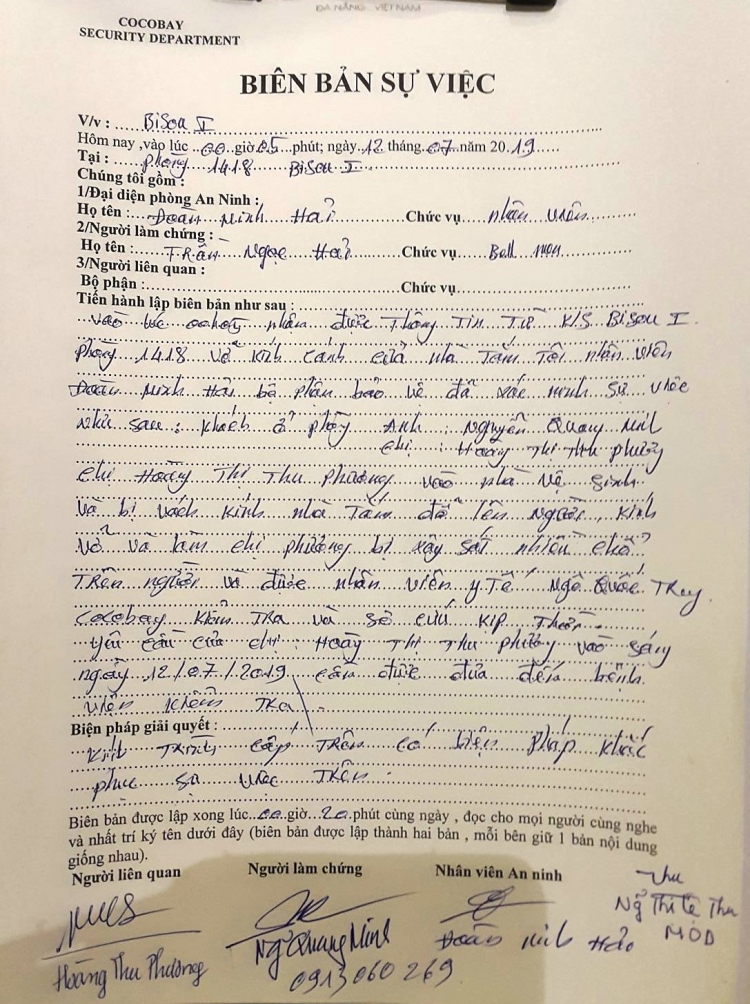 ĐÀ NẴNG - VIỆT NAM
COCOBAY
SECURITY DEPARTMENT
BIÊN BẢN SỰ VIỆC
V/v : BiSou I
Hôm nay ,vào lúc 00 giờ 05 phút; ngày 12 tháng 07 năm 2019
Tại : phòng 1418 BiSou I
Chúng tôi gồm :
1/Đại diện phòng An Ninh :
Họ tên : Đoàn Minh Hải Chức vụ nhân viên
2/Người làm chứng :
Họ tên : TRần Ngọc Hải Chức vụ Bell men
3/Người liên quan :
Bộ phận : Chức vụ
Tiến hành lập biên bản như sau :
vào lúc nhận được Thông Tin Từ K/S BiSou I
phòng 1418 vỡ kính cánh cửa nhà Tắm Tôi nhân viên
Đoàn Minh Hải bộ phận bảo vệ đã xác minh sự việc
như sau : khách ở phòng Anh : Nguyễn Quang Minh
chị : Hoàng Thị Thu phương
chị Hoàng Thị Thu phương vào nhà vệ sinh
và bị vách kính nhà Tắm đổ lên người, kính
vỡ và làm chị phương bị xây sát nhiều chỗ
Trên người và được nhân viên y Tế Ngô Quốc
Cocobay kiểm TRa và sơ cứu kịp Thời.
yêu cầu của chị : Hoàng Thị Thu phương vào sáng
ngày 12/07/2019 cần được đưa đến bệnh
viện kiểm TRa.
Biện pháp giải quyết :
kính TRình cấp TRên có biện pháp khắc
phục sự việc TRên.
Biên bản được lập xong lúc 00 giờ 20 phút cùng ngày , đọc cho mọi người cùng nghe
và nhất trí ký tên dưới đây (biên bản được lập thành hai bản , mỗi bên giữ 1 bản nội dung
giống nhau).
Người liên quan Người làm chứng Nhân viên An ninh
Thu
Ng Thị Lệ Thu
MOD
Hoàng Thu Phương Ng Quang Minh Đoàn Minh Hải
0913060269